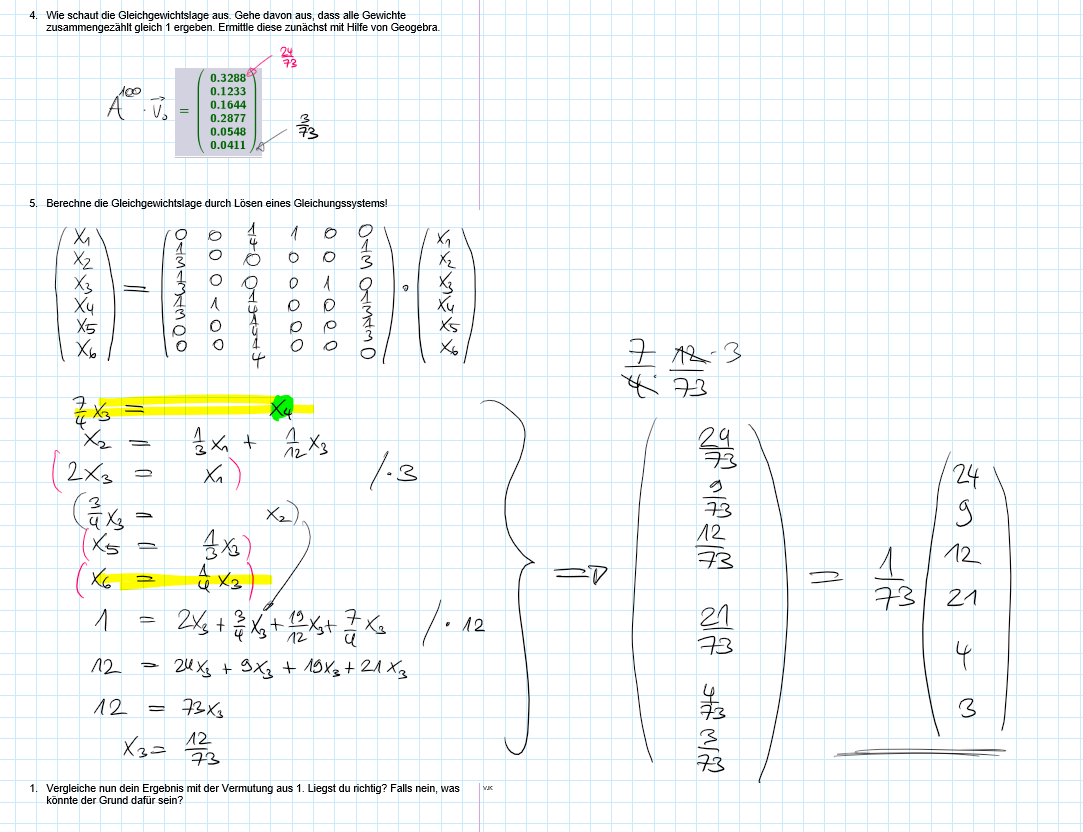 4. Wie schaut die Gleichgewichtslage aus. Gehe davon aus, dass alle Gewichte
zusammengezählt gleich 1 ergeben. Ermittle diese zunächst mit Hilfe von Geogebra.
24/73
A^100 · v⃗₀ = (0.3288
0.1233
0.1644
0.2877
0.0548
0.0411)
3/73
5. Berechne die Gleichgewichtslage durch Lösen eines Gleichungssystems!
(x₁ x₂ x₃ x₄ x₅ x₆) =
0 0 1/4 1 0 0
1/3 0 0 0 0 1/3
1/3 0 0 0 1 0
1/3 1 1/4 0 0 1/3
0 0 1/4 0 0 1/3
0 0 1/4 0 0 0
· (x₁ x₂ x₃ x₄ x₅ x₆)
7/4 · 12/73 · 3
7/4 x₃ = x₄
x₂ = 1/3 x₁ + 1/12 x₃
(2x₃ = x₁) / · 3
(3/4 x₃ = x₂)
(x₅ = 1/3 x₃)
(x₆ = 1/4 x₃)
1 = 2x₃ + 3/4 x₃ + 19/12 x₃ + 7/4 x₃ / · 12
12 = 24x₃ + 9x₃ + 19x₃ + 21x₃
12 = 73x₃
x₃ = 12/73
⇒ (24/73
9/73
12/73
21/73
4/73
3/73)
= 1/73 (24
9
12
21
4
3)
1. Vergleiche nun dein Ergebnis mit der Vermutung aus 1. Liegst du richtig? Falls nein, was
könnte der Grund dafür sein?